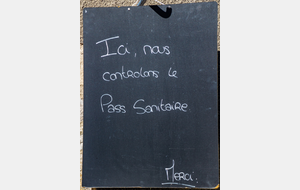 Ici, nous
controlons le
Pass Sanitaire
Merci.